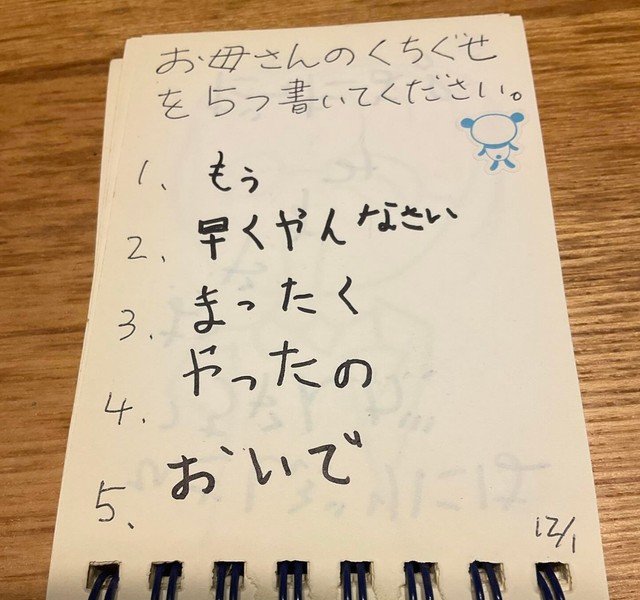 お母さんのくちぐせ
を5つ書いてください。
1、もう
2、早くやんなさい
3、まったく
4、やったの
5、おいで
12/1